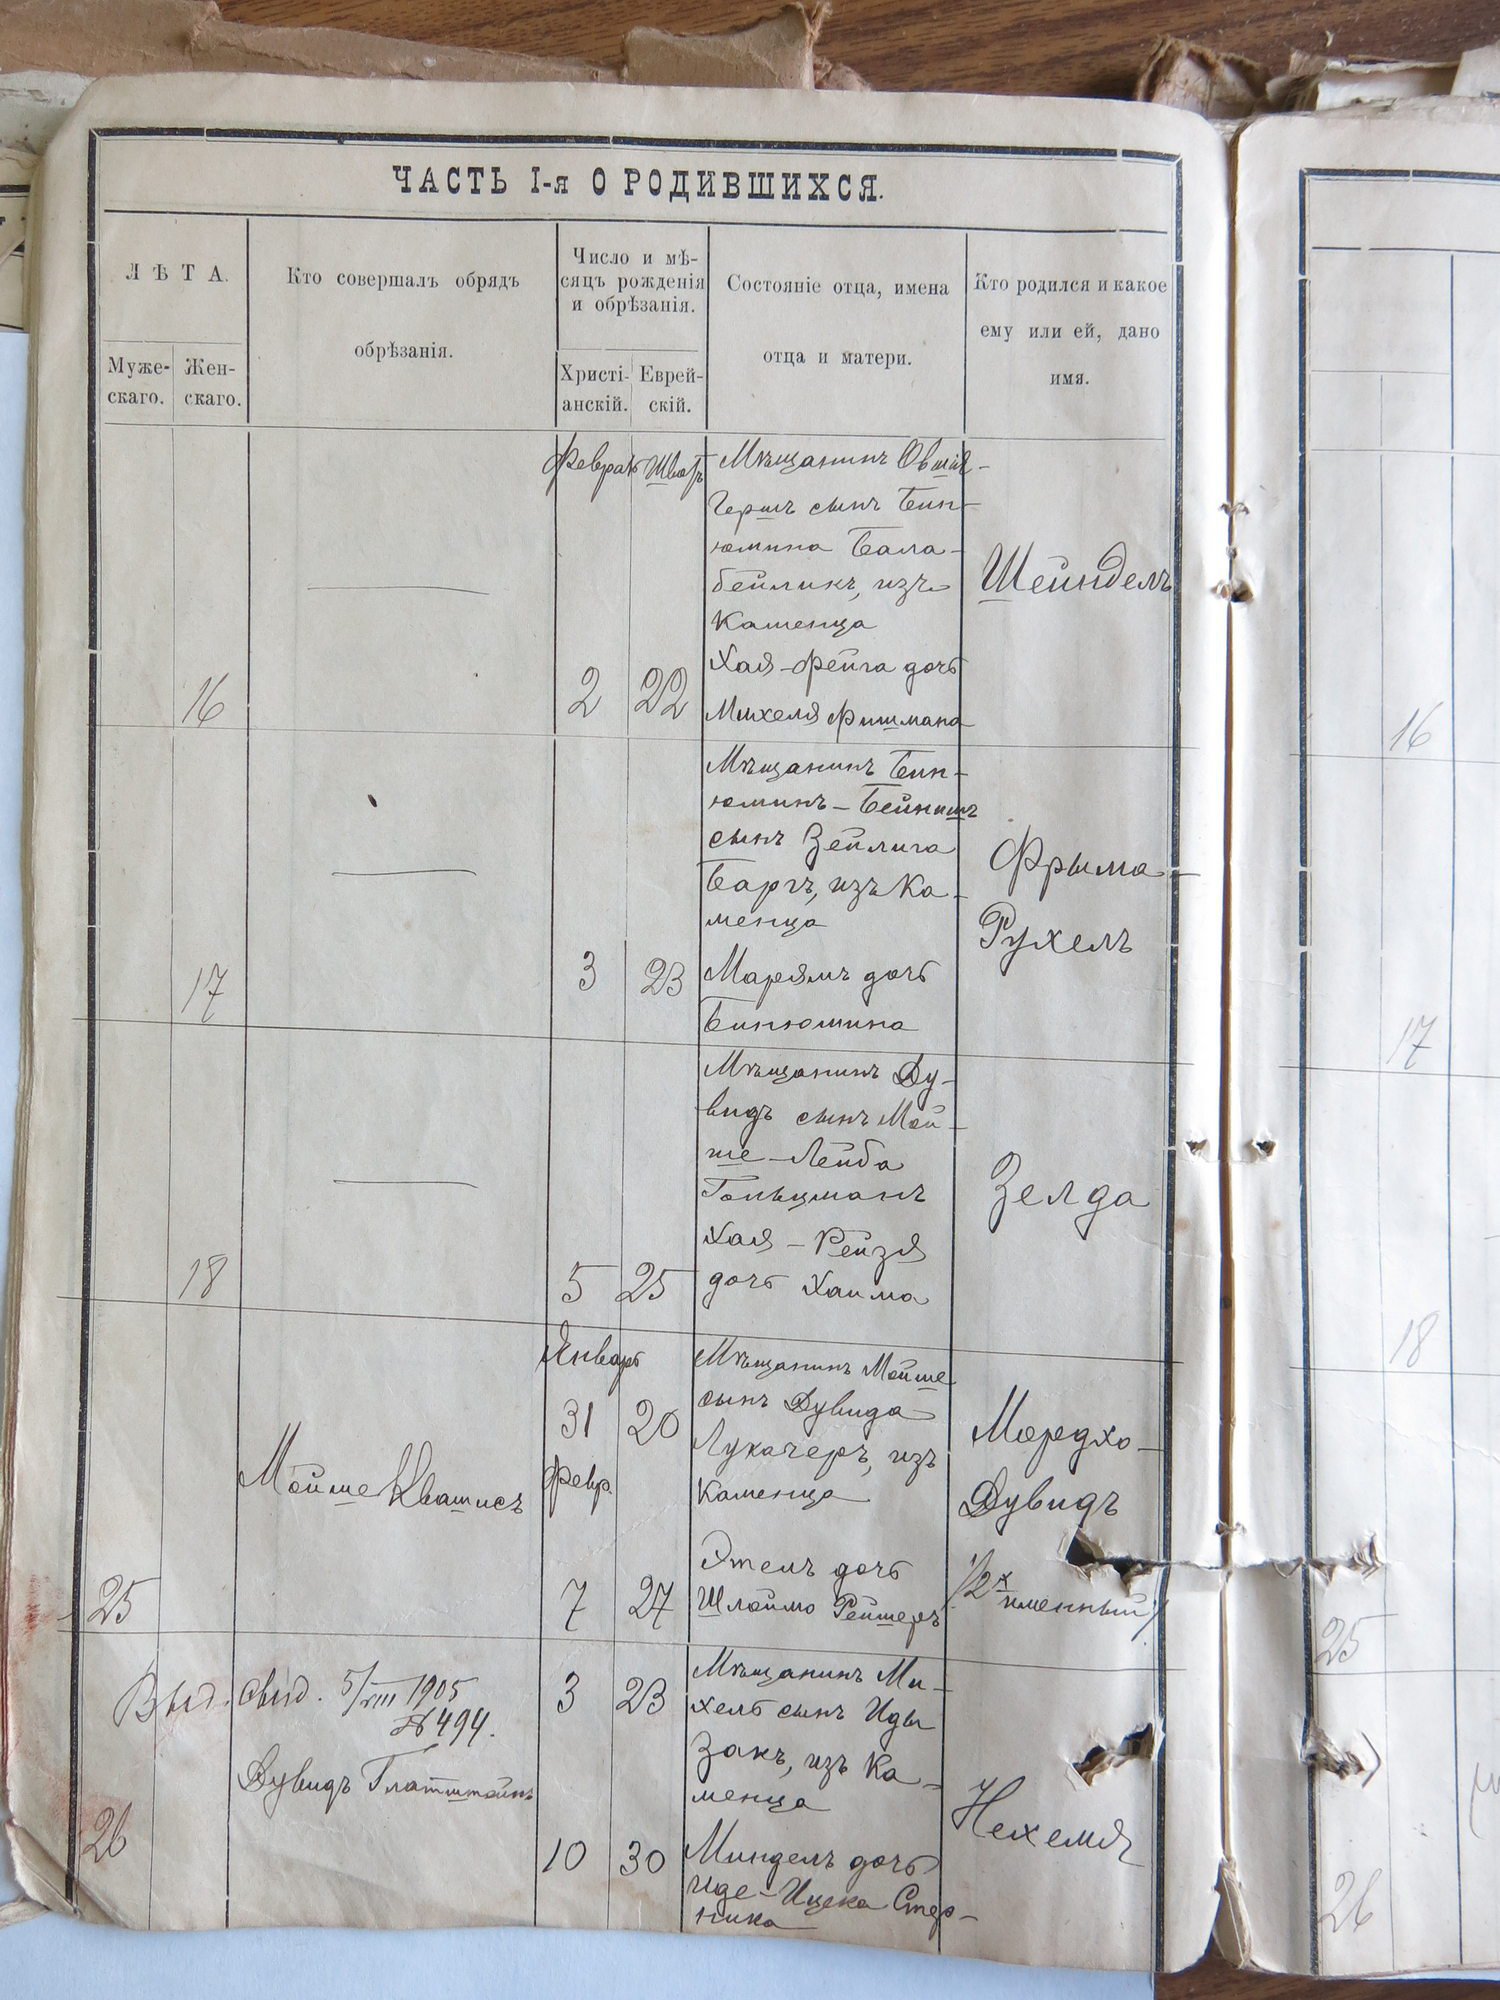 ЧАСТЬ I-я О РОДИВШИХСЯ.
ЛѢТА.
Муже-
скаго.
Жен-
скаго.
Кто совершалъ обрядъ
обрѣзанія.
Число и мѣ-
сяцъ рожденія
и обрѣзанія.
Христі-
анскій.
Еврей-
скій.
Состояніе отца, имена
отца и матери.
Кто родился и какое
ему или ей, дано
имя.
16
Февраль
2
22
Мѣщанинъ Овшія-
Гершъ сынъ Бин-
юмина Бала-
бейликъ, изъ
Каменца
Хая-Фейга дочь
Михеля Фишмана
Шейндель
17
3
23
Мѣщанинъ Бин-
юминъ-Бейнишъ
сынъ Зейлига
Баргъ, изъ Ка-
менца
Маріямъ дочь
Бинюмина
Фрыма-
Рухель
18
5
25
Мѣщанинъ Ду-
видъ сынъ Мой-
ше-Лейба
Гольцманъ
Хая-Рейзя
дочь Хаима
Зелда
25
Мойше Квашисъ
Январь
31
20
Февр.
7
27
Мѣщанинъ Мойше
сынъ Дувида
Лукачеръ, изъ
Каменца
Этель дочь
Шлоймо Рейшеръ
Мордхо-
Дувидъ
/2х
именный/
Выд. свид. 5/VIII 1905
№ 494.
26
Дувидъ Глатштейнъ
3
23
10
30
Мѣщанинъ Ми-
хель сынъ Иды
Закъ, изъ Ка-
менца
Миндель дочь
Иде-Ицека Стер-
ника
Нехемя
16
17
18
25
26